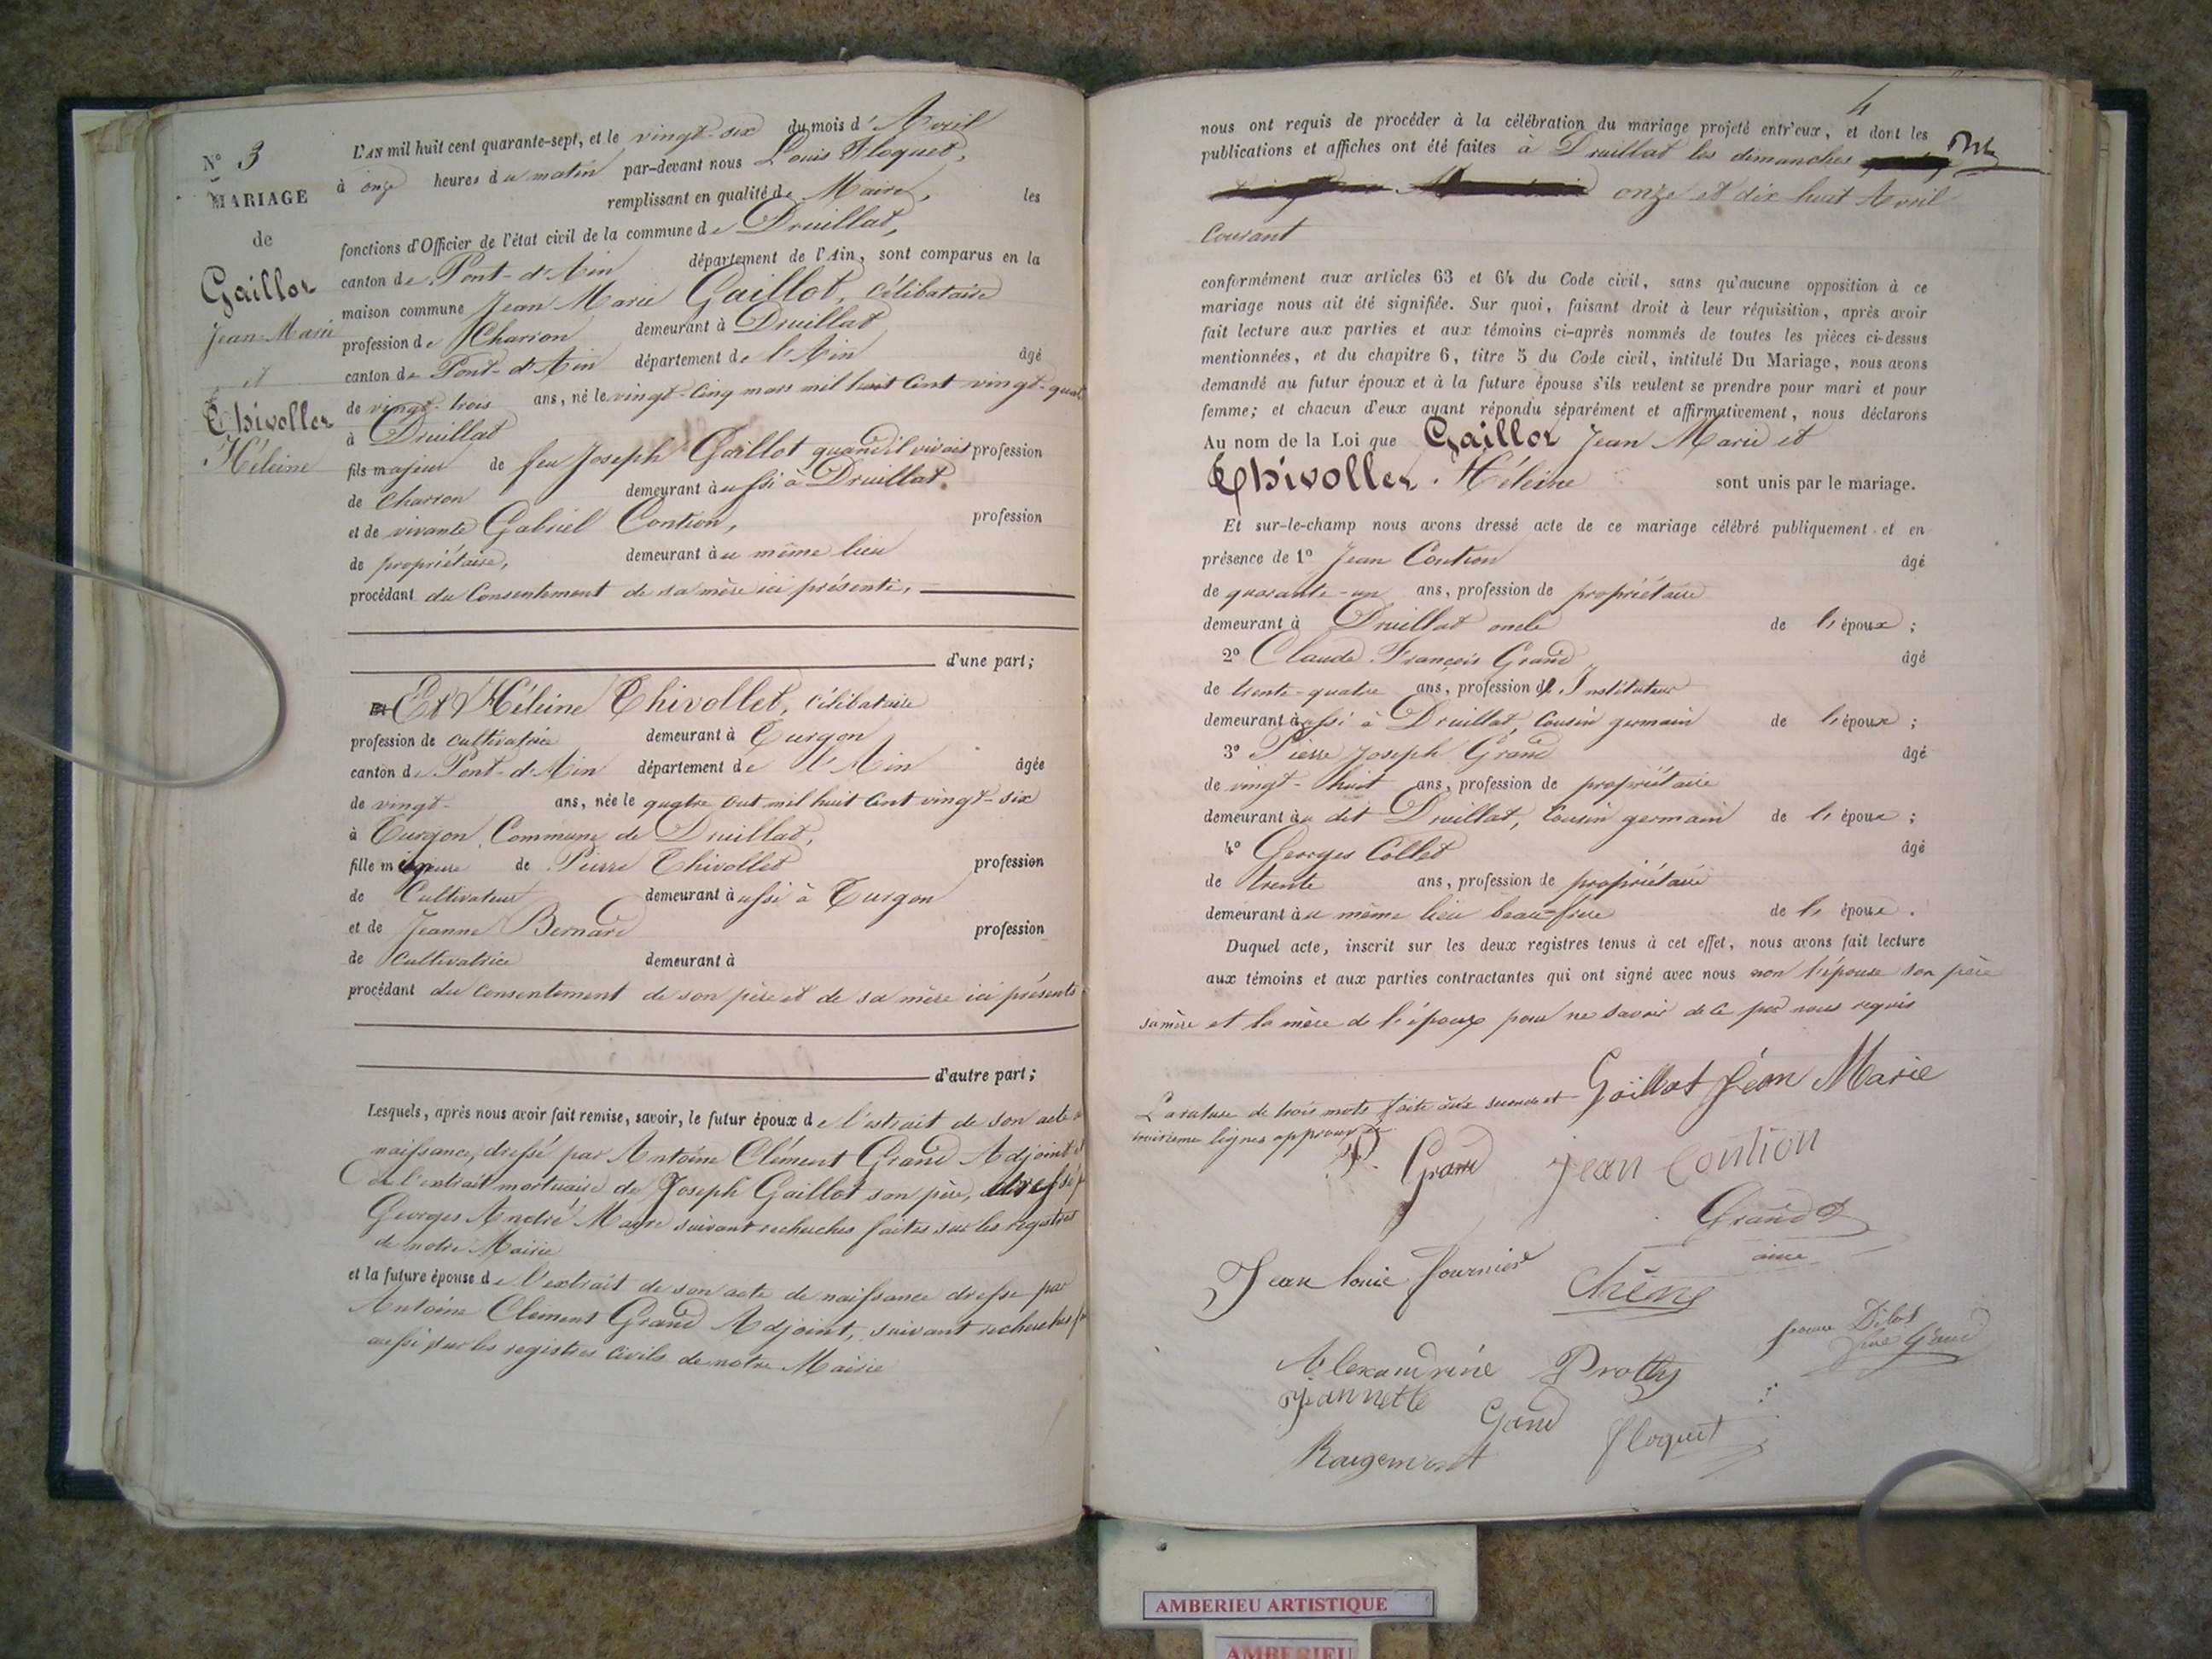 N° 3
MARIAGE
de
Gaillot
Jean-Marie
et
Thivollet
Héleine
L'AN mil huit cent quarante-sept, et le vingt-six du mois d'Avril
à onze heures du matin par-devant nous Louis Floquet,
remplissant en qualité de Maire, les
fonctions d'Officier de l'état civil de la commune de Druillat,
canton de Pont-d'Ain département de l'Ain, sont comparus en la
maison commune Jean Marie Gaillot, célibataire
profession de Charron demeurant à Druillat
canton de Pont-d'Ain département de l'Ain âgé
de vingt-trois ans, né le vingt-cinq mars mil huit cent vingt-quatre
à Druillat
fils majeur de feu Joseph Gaillot quand il vivait profession
de charron demeurant aussi à Druillat.
et de vivante Gabriel Contion, profession
de propriétaire, demeurant au même lieu
procédant du Consentement de sa mère ici présente,
d'une part;
Et Héleine Thivollet, célibataire
profession de cultivatrice demeurant à Turgon
canton de Pont-d'Ain département de l'Ain âgée
de vingt- ans, née le quatre out mil huit cent vingt-six
à Turgon Commune de Druillat,
fille mineure de Pierre Thivollet profession
de Cultivateur demeurant aussi à Turgon
et de Jeanne Bernard profession
de Cultivatrice demeurant à
procédant du consentement de son père et de sa mère ici présents
d'autre part;
Lesquels, après nous avoir fait remise, savoir, le futur époux de l'extrait de son acte de
naissance, dressé par Antoine Clément Grand Adjoint et
de l'extrait mortuaire de Joseph Gaillot son père, dressé
Georges André Maire suivant recherches faites sur les registres
de notre Mairie
et la future épouse de l'extrait de son acte de naissance dressé par
Antoine Clement Grand Adjoint, suivant recherches
aussi sur les registres civils de notre Mairie
4
nous ont requis de procéder à la célébration du mariage projeté entr'eux, et dont les
publications et affiches ont été faites à Druillat les dimanches
onze et dix huit Avril
Courant
conformément aux articles 63 et 64 du Code civil, sans qu'aucune opposition à ce
mariage nous ait été signifiée. Sur quoi, faisant droit à leur réquisition, après avoir
fait lecture aux parties et aux témoins ci-après nommés de toutes les pièces ci-dessus
mentionnées, et du chapitre 6, titre 5 du Code civil, intitulé Du Mariage, nous avons
demandé au futur époux et à la future épouse s'ils veulent se prendre pour mari et pour
femme; et chacun d'eux ayant répondu séparément et affirmativement, nous déclarons
Au nom de la Loi que Gaillot Jean Marie et
Thivollet Héleine sont unis par le mariage.
Et sur-le-champ nous avons dressé acte de ce mariage célébré publiquement et en
présence de 1° Jean Contion âgé
de quarante-un ans, profession de propriétaire
demeurant à Druillat oncle de l'époux ;
2° Claude François Grand âgé
de trente-quatre ans, profession d'Instituteur
demeurant aussi à Druillat, Cousin germain de l'époux ;
3° Pierre Joseph Grand âgé
de vingt-huit ans, profession de propriétaire
demeurant au dit Druillat, Cousin germain de l'époux ;
4° Georges Collet âgé
de trente ans, profession de propriétaire
demeurant au même lieu beau-frère de l'époux .
Duquel acte, inscrit sur les deux registres tenus à cet effet, nous avons fait lecture
aux témoins et aux parties contractantes qui ont signé avec nous non l'épouse son père
sa mère et la mère de l'époux pour ne savoir de ce par nous requis
La rature de trois mots faite aux seconde et Gaillot Jean Marie
troisième lignes approuvée
P. Grand Jean Contion
Grand
aine
Jean Louis Fournier Chêne
Alexandrine Prothy
Jeannette Grand Floquet
Rougemont
AMBERIEU ARTISTIQUE
AMBERIEU